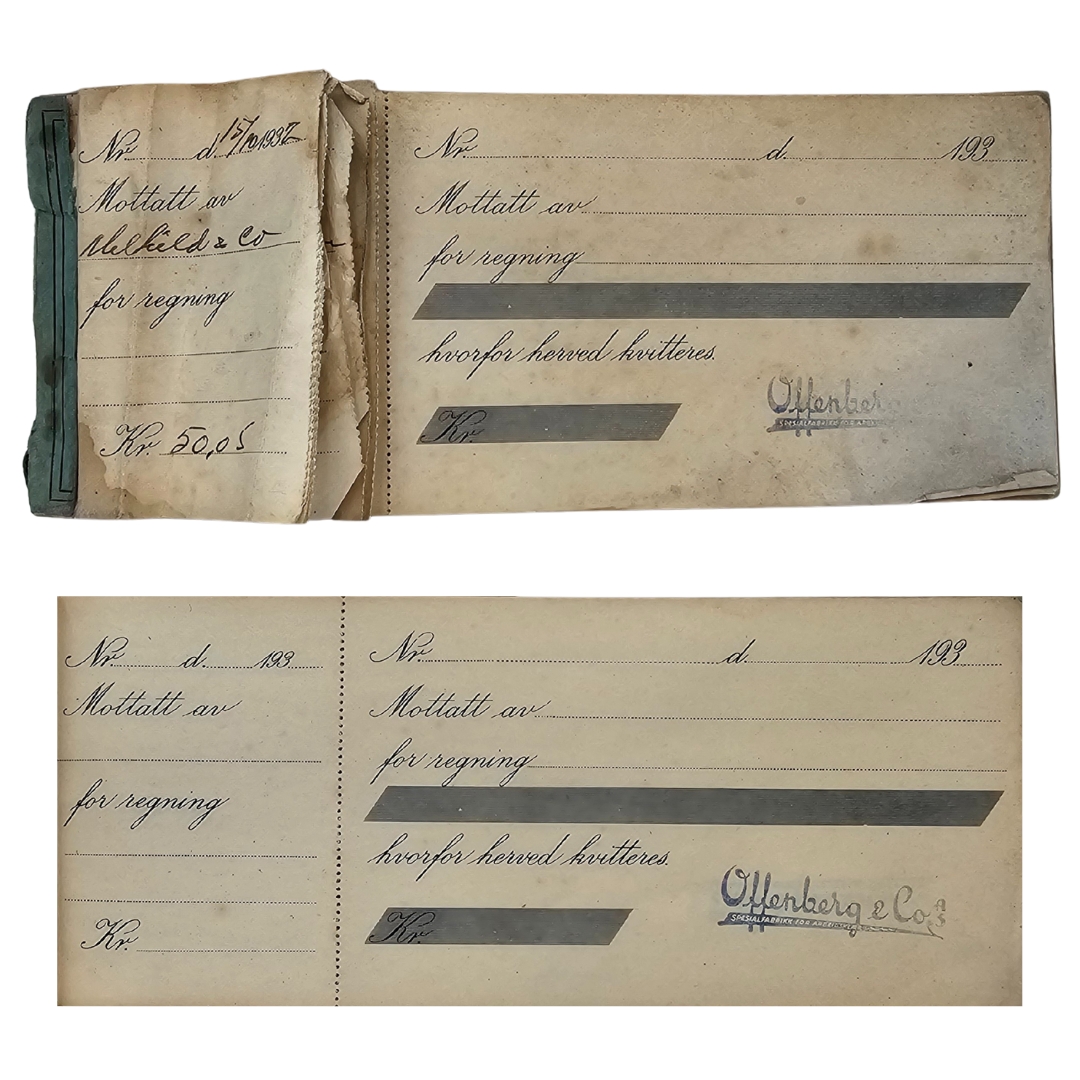 Nr. d. 15/10 1937
Mottatt av
& Co
for regning
Kr. 50,05
Nr. d. 193
Mottatt av
for regning
hvorfor herved kvitteres.
Kr.
Offenberg
SPESIALFABRIKK FOR
Nr. d. 193
Mottatt av
for regning
Kr.
Nr. d. 193
Mottatt av
for regning
hvorfor herved kvitteres.
Kr.
Offenberg & Co. A/S
SPESIALFABRIKK FOR